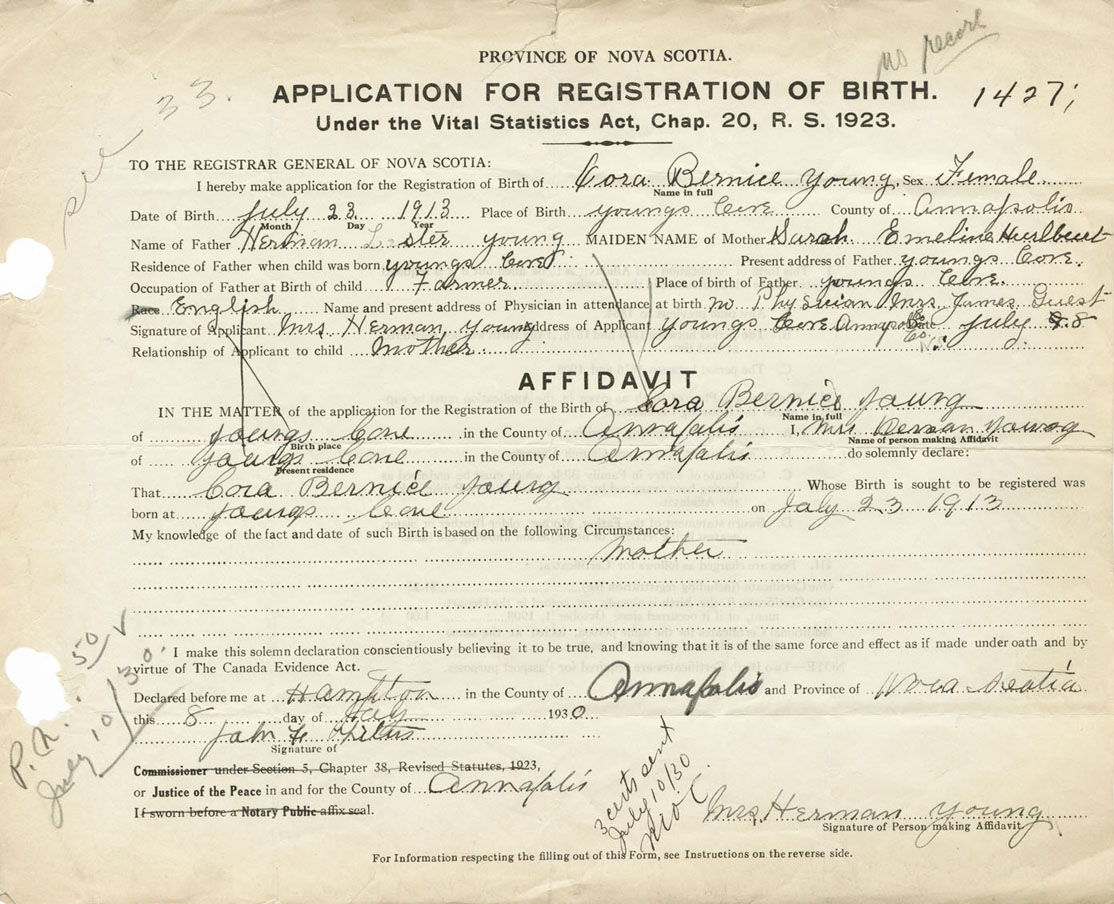 no record
PROVINCE OF NOVA SCOTIA.
see 33.
APPLICATION FOR REGISTRATION OF BIRTH. 1427;
Under the Vital Statistics Act, Chap. 20, R. S. 1923.
TO THE REGISTRAR GENERAL OF NOVA SCOTIA:
I hereby make application for the Registration of Birth of Cora Bernice Young, Sex Female
Name in full
Date of Birth July 23 1913 Place of Birth youngs Cove County of Annapolis
Month Day Year
Name of Father Herman young MAIDEN NAME of Mother Sarah Emeline Hurlbeurt
Residence of Father when child was born youngs Cove Present address of Father youngs Cove.
Occupation of Father at Birth of child Farmer Place of birth of Father youngs Cove.
Race English Name and present address of Physician in attendance at birth no Mrs. James Guest
Signature of Applicant Mrs Herman Young Address of Applicant youngs Cove Annapolis Co. N.S. Date July 8
Relationship of Applicant to child Mother
AFFIDAVIT
IN THE MATTER of the application for the Registration of the Birth of Cora Bernice young
Name in full
of youngs Cove in the County of Annapolis I, Mrs Herman Young
Birth place Name of person making Affidavit
of youngs Cove in the County of Annapolis do solemnly declare:
Present residence
That Cora Bernice young Whose Birth is sought to be registered was
born at youngs Cove on July 23 1913
My knowledge of the fact and date of such Birth is based on the following Circumstances:
Mother
I make this solemn declaration conscientiously believing it to be true, and knowing that it is of the same force and effect as if made under oath and by
virtue of The Canada Evidence Act.
Declared before me at Hampton in the County of Annapolis and Province of Nova Scotia
this 8 day of July 1930
John F
Signature of
Commissioner under Section 5, Chapter 38, Revised Statutes, 1923,
or Justice of the Peace in and for the County of Annapolis
If sworn before a Notary Public affix seal.
P.N. .50 ✓
July 10/30
3 certs sent
July 10/30
Mrs, Herman Young
Signature of Person making Affidavit
For Information respecting the filling out of this Form, see Instructions on the reverse side.